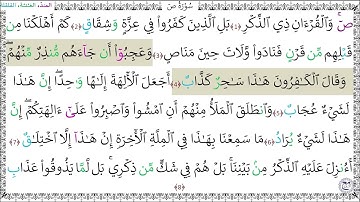 سُورَةُ صٓ
صٓۚ وَٱلۡقُرۡءَانِ ذِي ٱلذِّكۡرِ (1) بَلِ ٱلَّذِينَ كَفَرُواْ فِي عِزَّةٖ وَشِقَاقٖ (2) كَمۡ أَهۡلَكۡنَا مِن
قَبۡلِهِم مِّن قَرۡنٖ فَنَادَواْ وَّلَاتَ حِينَ مَنَاصٖ (3) وَعَجِبُوٓاْ أَن جَآءَهُم مُّنذِرٞ مِّنۡهُمۡۖ
وَقَالَ ٱلۡكَٰفِرُونَ هَٰذَا سَٰحِرٞ كَذَّابٌ (4) أَجَعَلَ ٱلۡأٓلِهَةَ إِلَٰهٗا وَٰحِدًاۖ إِنَّ هَٰذَا
لَشَيۡءٌ عُجَابٞ (5) وَٱنطَلَقَ ٱلۡمَلَأُ مِنۡهُمۡ أَنِ ٱمۡشُواْ وَٱصۡبِرُواْ عَلَىٰٓ ءَالِهَتِكُمۡۖ إِنَّ
هَٰذَا لَشَيۡءٞ يُرَادُ (6) مَا سَمِعۡنَا بِهَٰذَا فِي ٱلۡمِلَّةِ ٱلۡأٓخِرَةِ إِنۡ هَٰذَآ إِلَّا ٱخۡتِلَٰقٌ (7)
أَءُنزِلَ عَلَيۡهِ ٱلذِّكۡرُ مِنۢ بَيۡنِنَاۚ بَلۡ هُمۡ فِي شَكّٖ مِّن ذِكۡرِيۚ بَل لَّمَّا يَذُوقُواْ عَذَابِ
(8)